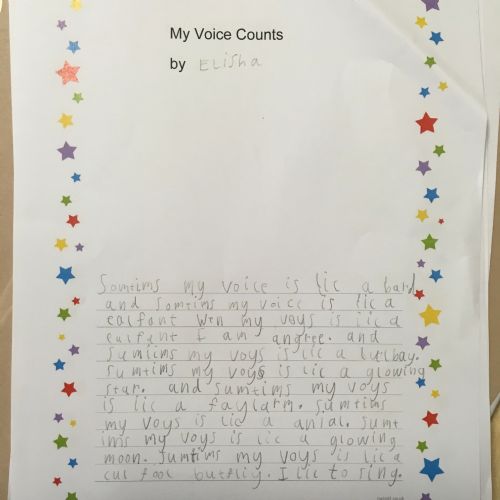 My Voice Counts
by Elisha
Somtims my voice is lic a bard
and somtims my voice is lic a
ealfant wen my voys is lic a
ealfant I am angree. and
sumtims my voys is lic a
sumtims my voys is lic a glowing
star. and sumtims my voys
is lic a faylarm. sumtims
my voys is lic a anial. sumt
ims my voys is lic a glowing
moon. sumtims my voys is lic a
butfliy. I lic to sing.